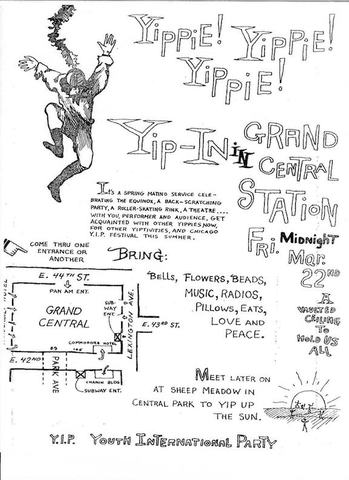 YIPPIE! YIPPIE!
YIPPIE!
YIP-IN IN GRAND
CENTRAL
STATION
FRI. MIDNIGHT
MAR.
22ND
A
VAULTED
CEILING
TO
HOLD US
ALL
IT'S A SPRING MATING SERVICE CELE-
BRATING THE EQUINOX, A BACK-SCRATCHING
PARTY, A ROLLER-SKATING RINK, A THEATRE....
WITH YOU, PERFORMER AND AUDIENCE, GET
ACQUAINTED WITH OTHER YIPPIES NOW,
FOR OTHER YIPTIVITIES, AND CHICAGO
Y.I.P. FESTIVAL THIS SUMMER.
COME THRU ONE
ENTRANCE OR
ANOTHER
E. 44TH ST.
PAN AM ENT.
GRAND
CENTRAL
SUB-
WAY
ENT.
LEXINGTON AVE.
E. 43RD ST.
COMMODORE HOTEL
E. 42ND
PARK AVE
CHANIN BLDG
SUBWAY ENT.
BRING:
BELLS, FLOWERS, BEADS,
MUSIC, RADIOS,
PILLOWS, EATS,
LOVE AND
PEACE.
MEET LATER ON
AT SHEEP MEADOW IN
CENTRAL PARK TO YIP UP
THE SUN.
Y.I.P. YOUTH INTERNATIONAL PARTY